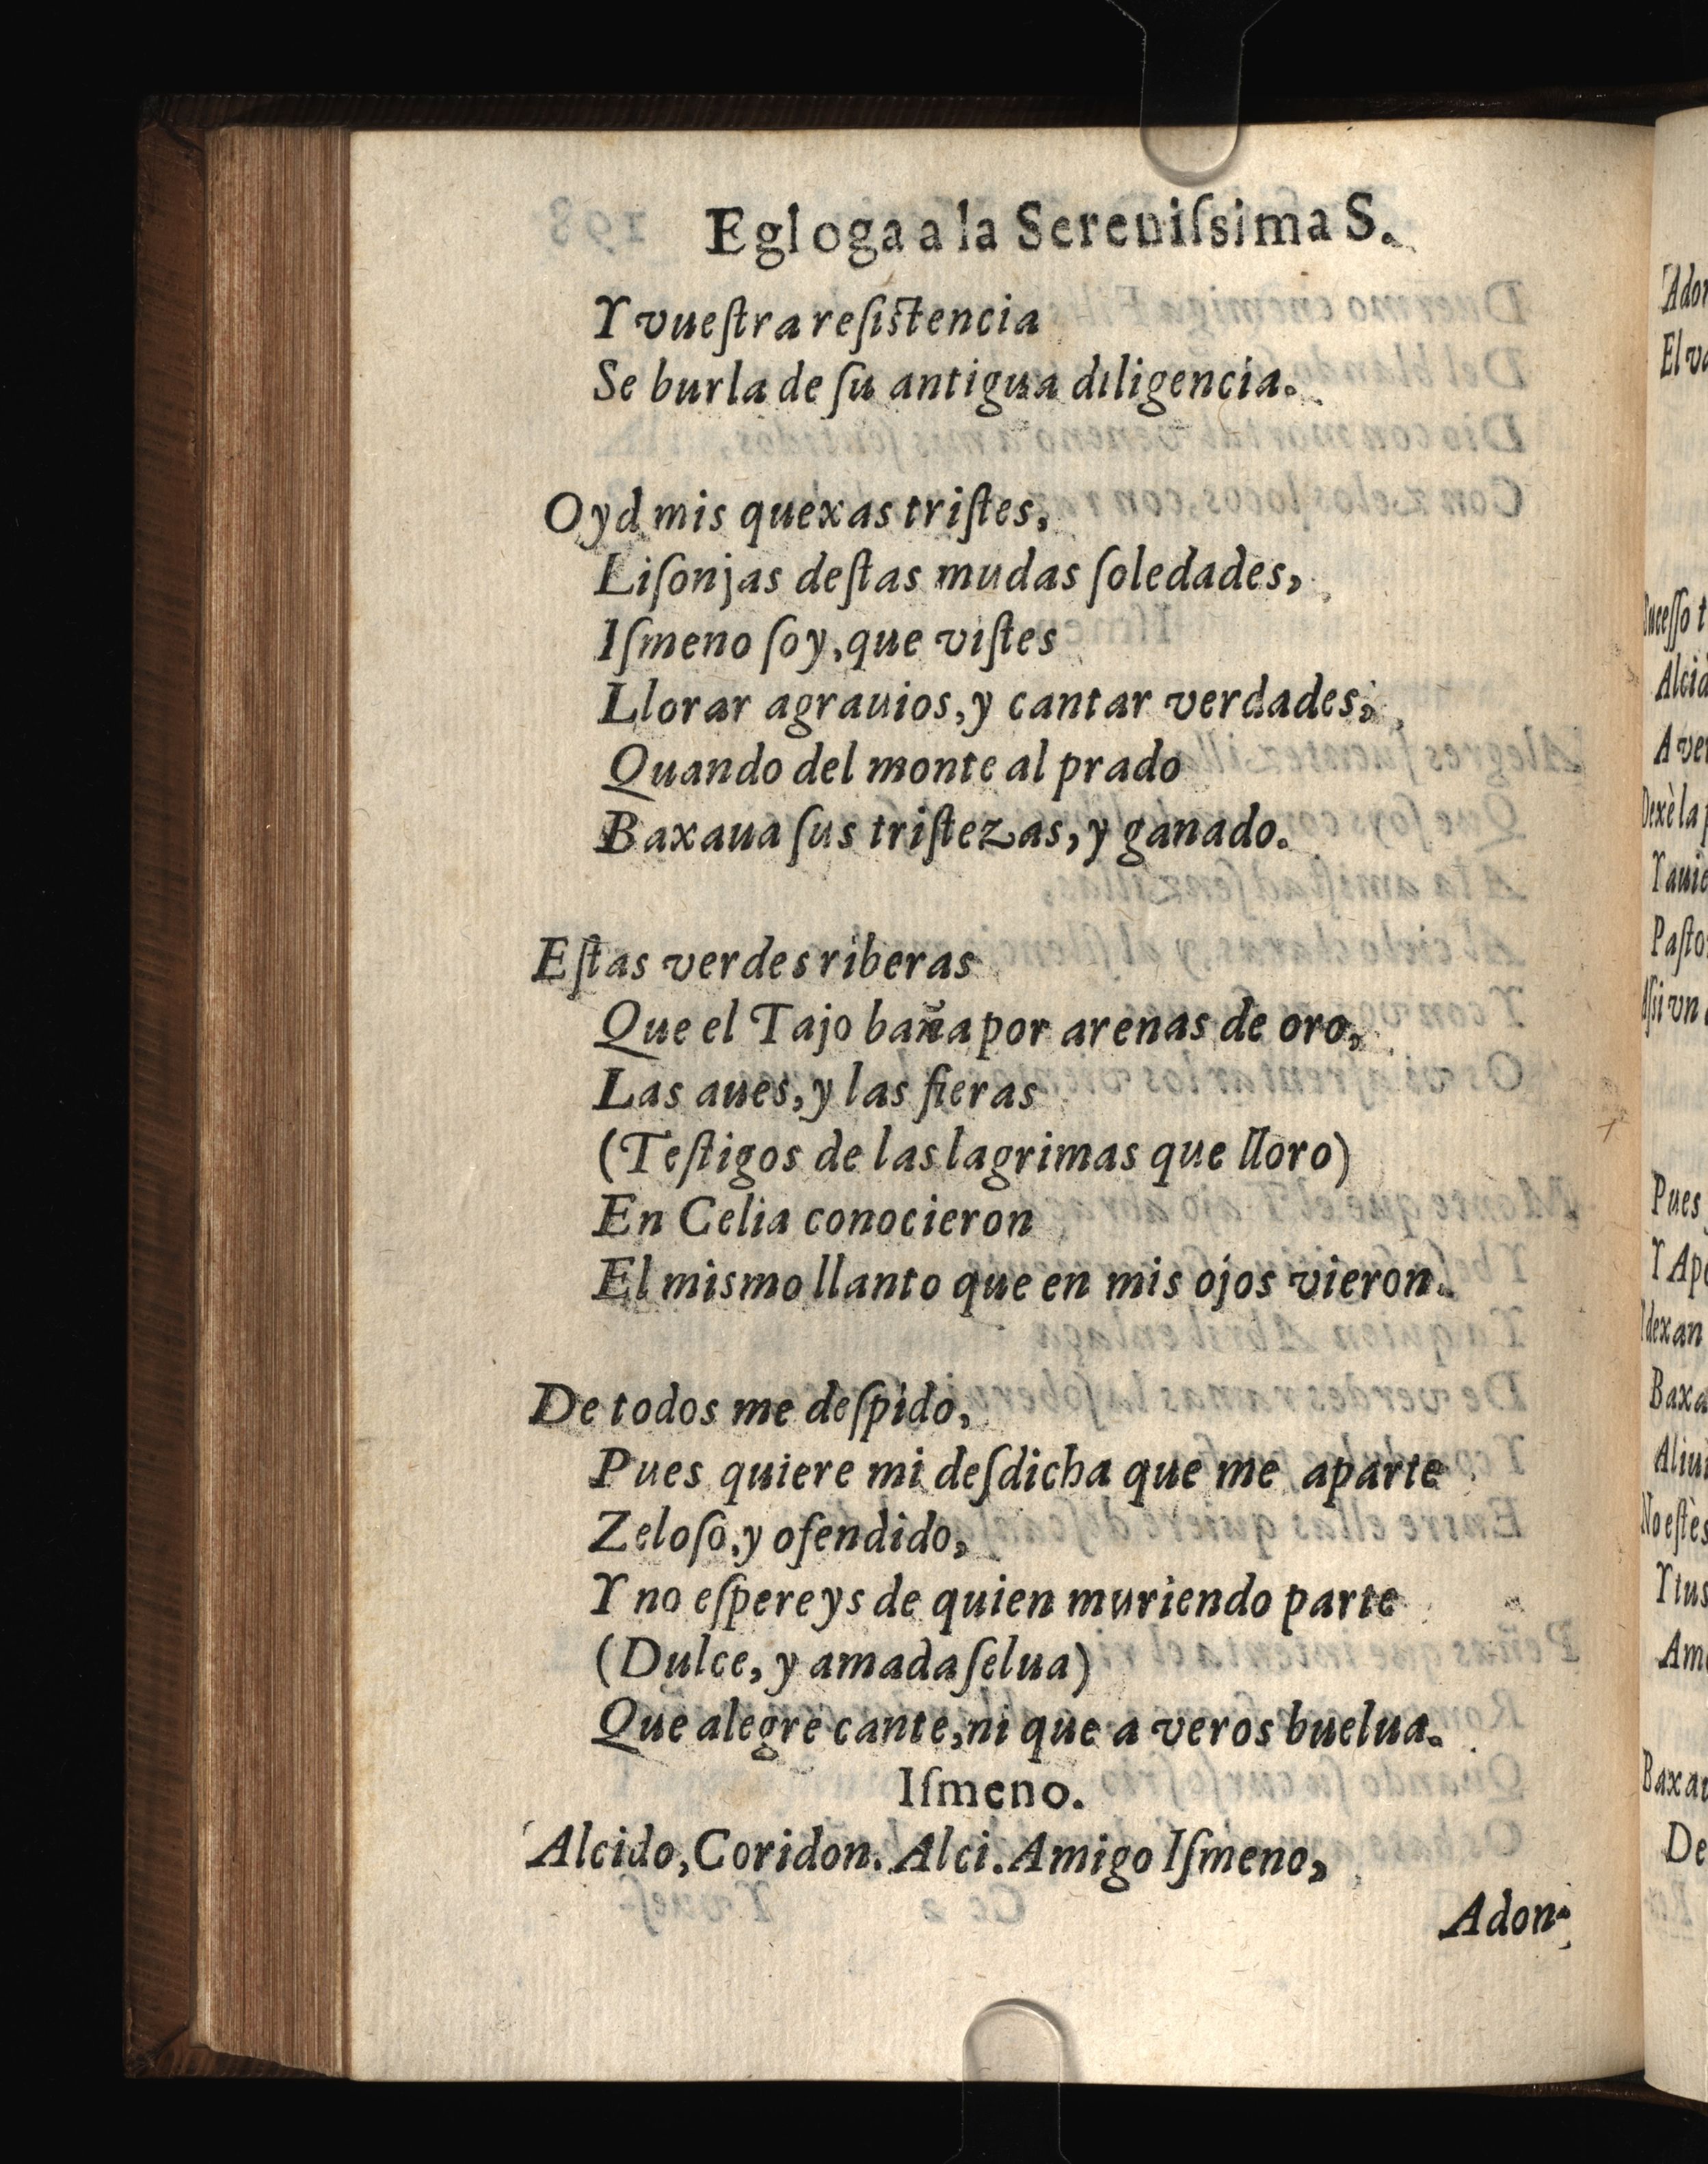 Egloga a la Sereuiſsima S.
Y vueſtra reſiſtencia
Se burla de ſu antigua diligencia.
Oyd mis quexas triſtes,
Liſonjas deſtas mudas ſoledades,
Iſmeno ſoy, que viſtes
Llorar agrauios, y cantar verdades,
Quando del monte al prado
Baxaua ſus triſtezas, y ganado.
Eſtas verdes riberas
Que el Tajo baña por arenas de oro,
Las aues, y las fieras
(Teſtigos de las lagrimas que lloro)
En Celia conocieron
El mismo llanto que en mis ojos vieron.
De todos me deſpido,
Pues quiere mi deſdicha que me aparte
Zeloſo, y ofendido,
Y no eſpereys de quien muriendo parte
(Dulce, y amada ſelua)
Que alegre cante, ni que a veros buelua.
Iſmeno.
Alcido, Coridon. Alci. Amigo Iſmeno,
Adon-